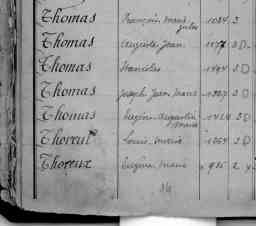 Thomas François Marie Jules 1084 3
Thomas Auguste Jean 3 D
Thomas Stanislas 1444 3 D
Thomas Joseph Jean Marie 1327 3 D
Thomas Eugène Augustin Marie 1414 3 D
Thoreux Louis Marie 1064 3 D
Thoreux Eugène Marie 2